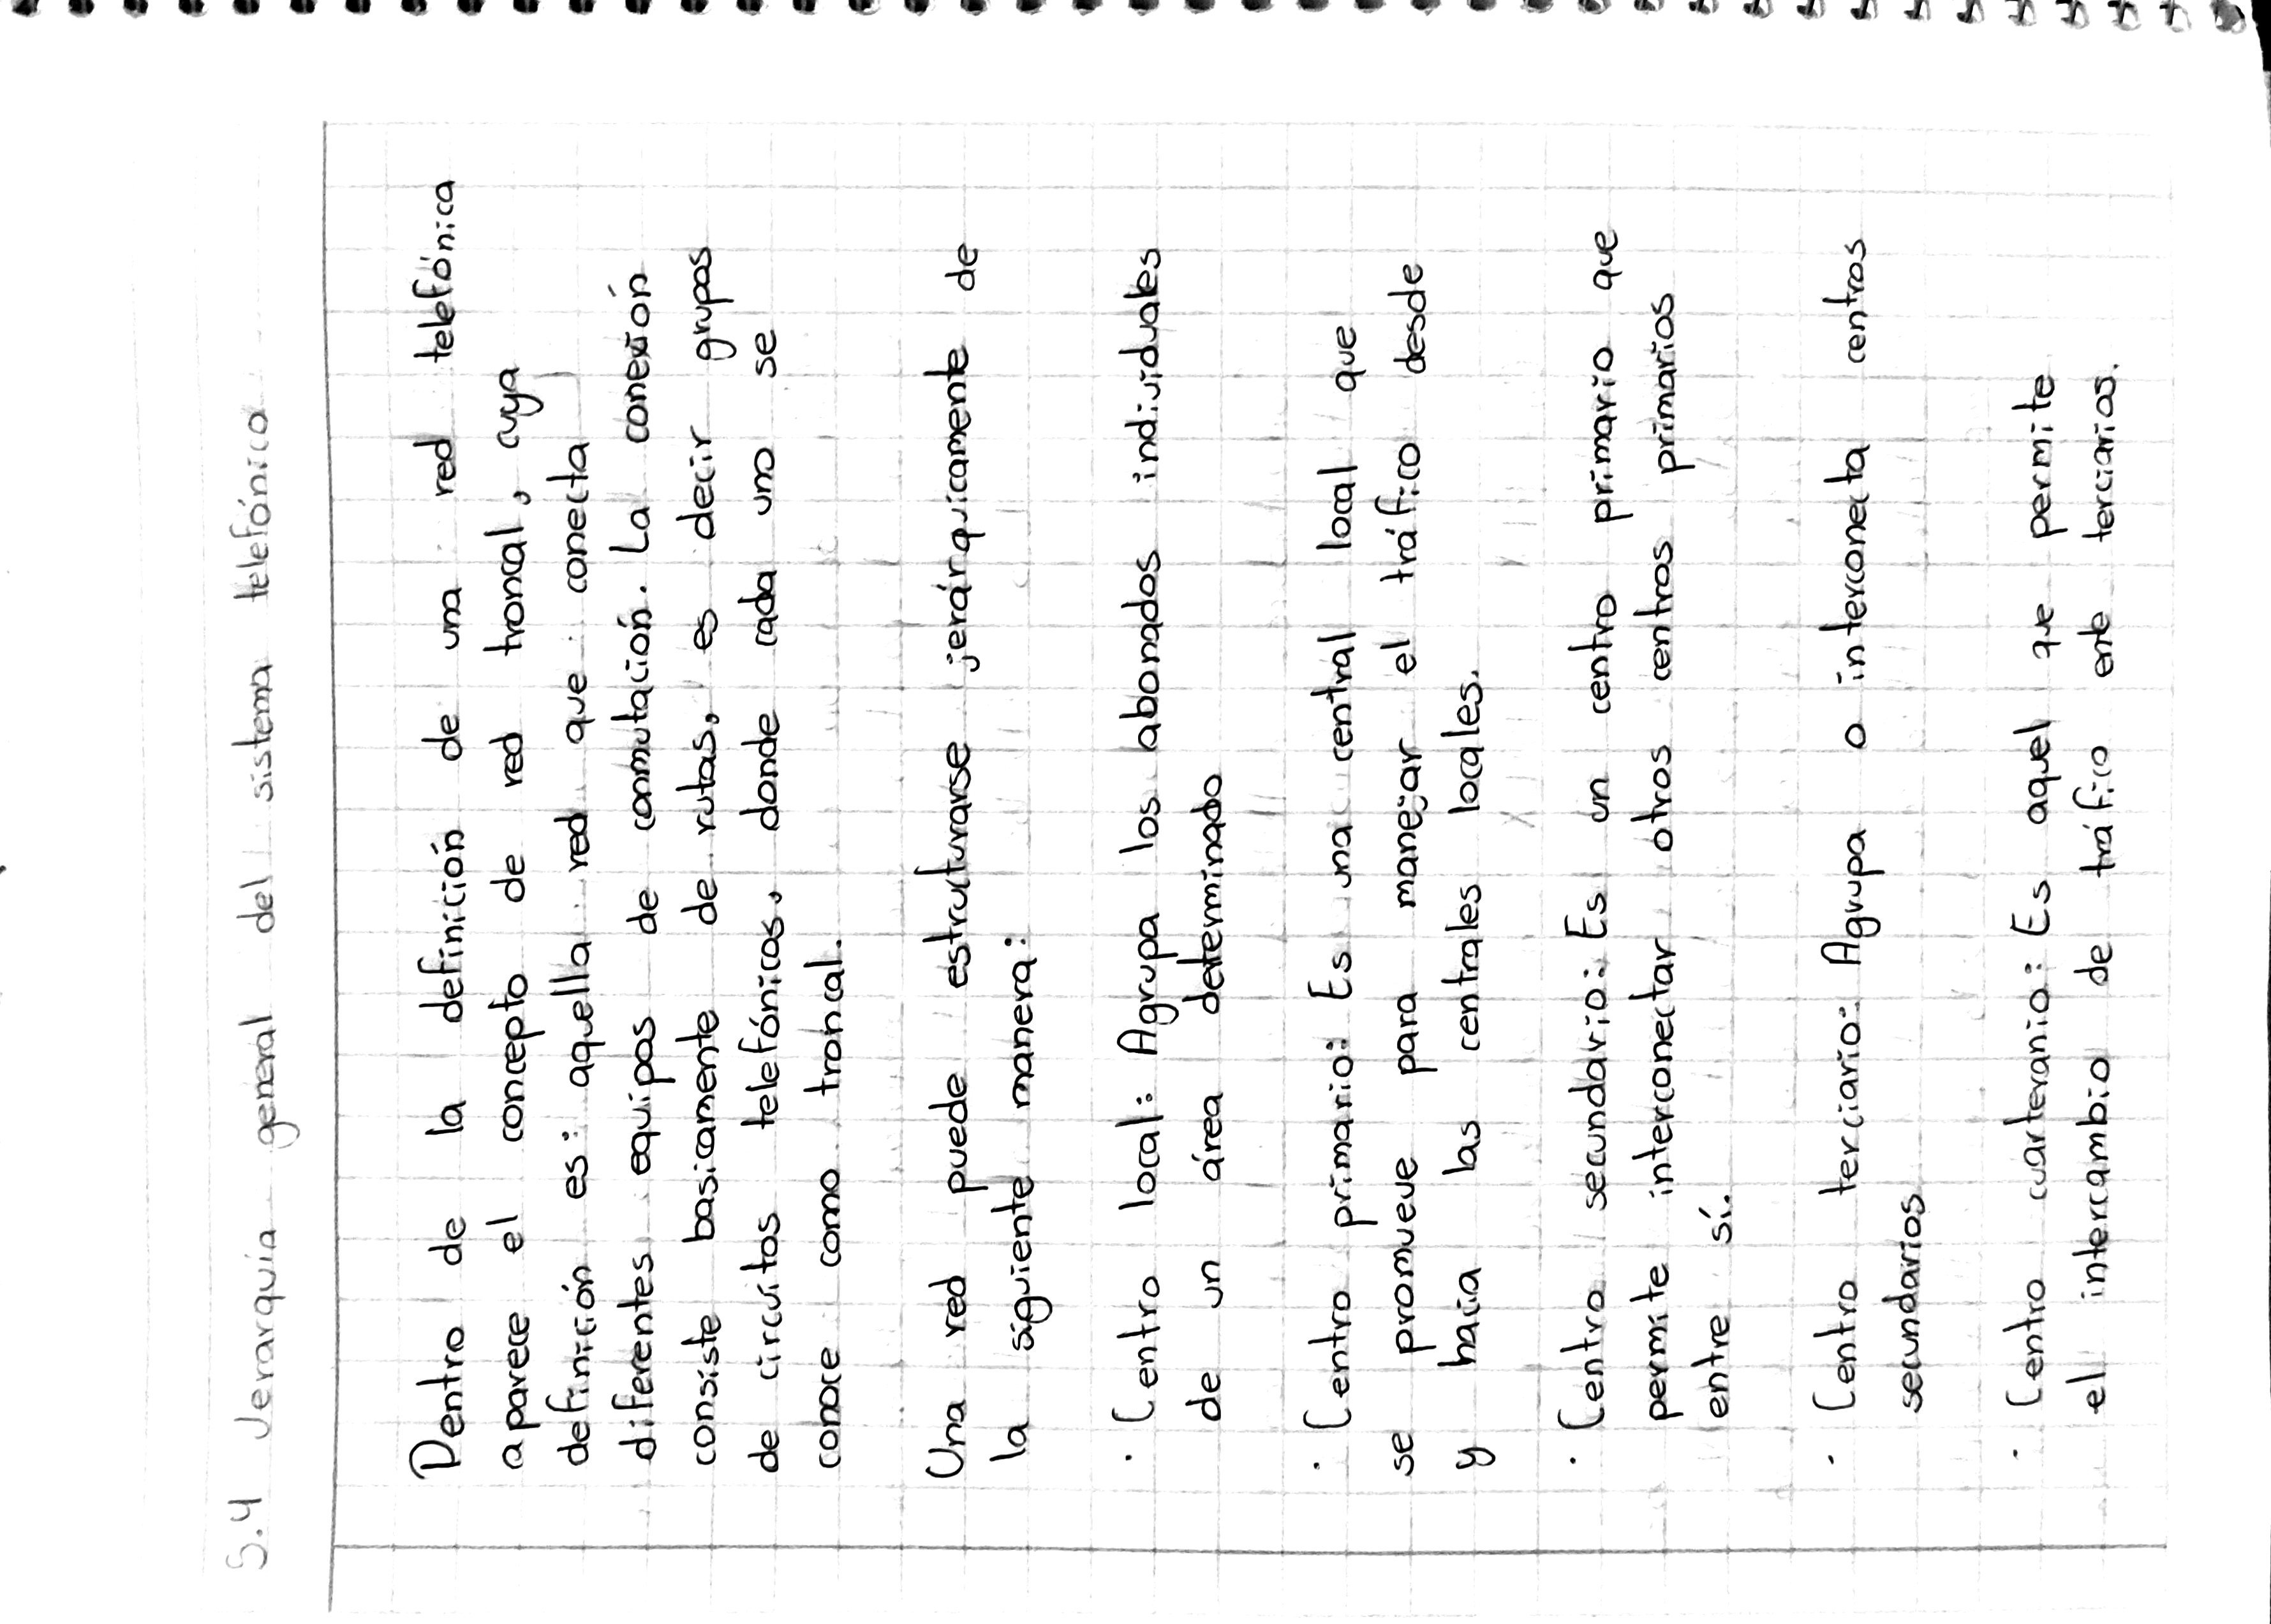 5.4 Jerarquía general del sistema telefónico
Dentro de la definición de una red telefónica
aparece el concepto de red troncal, cuya
definición es: aquella red que conecta
diferentes equipos de conmutación. La conexión
consiste basicamente de rutas, es decir grupos
de circuitos telefónicos, donde cada uno se
conoce como troncal.
Una red puede estructurarse jerárquicamente de
la siguiente manera:
· Centro local: Agrupa los abonados individuales
de un área determinado
· Centro primario: Es una central local que
se promueve para manejar el tráfico desde
y hacia las centrales locales.
· Centro secundario: Es un centro primario que
permite interconectar otros centros primarios
entre sí.
· Centro terciario: Agrupa o interconecta centros
secundarios
· Centro cuarteranio: Es aquel que permite
el intercambio de tráfico ente terciarios.